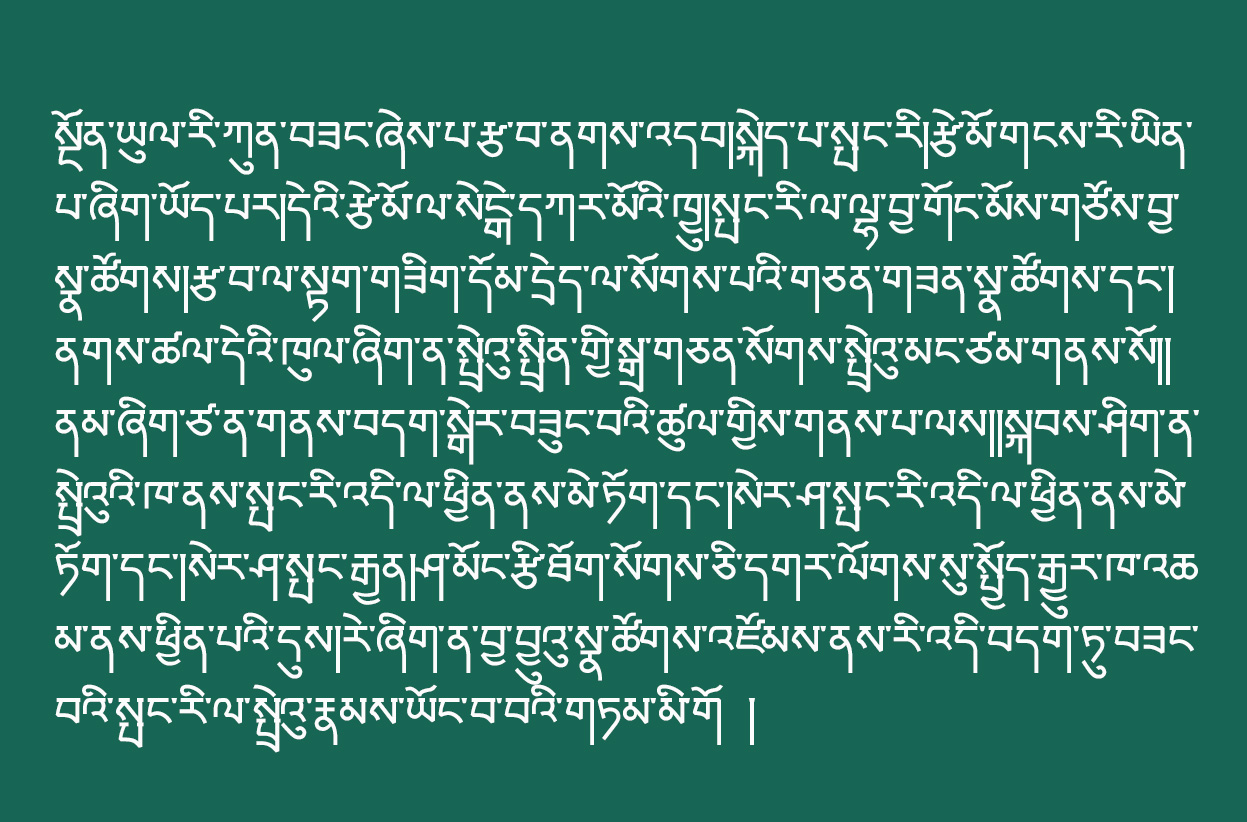 སྔོན་ཡུལ་རི་ཀུན་བཟང་ཞེས་པ་རྩ་བ་ནགས་འདབ།སྐེད་པ་སྤང་རི།རྩེ་མོ་གངས་རི་ཡིན་
པ་ཞིག་ཡོད་པར།དེའི་རྩེ་མོ་ལ་སེངྒེ་དཀར་མོའི་ཁྱུ།སྤང་རི་ལ་ལྷ་བྱ་གོང་མོས་གཙོས་བྱ་
སྣ་ཚོགས།རྩ་བ་ལ་སྟག་གཟིག་དོམ་དྲེད་ལ་སོགས་པའི་གཅན་གཟན་སྣ་ཚོགས་དང་།
ནགས་ཚལ་དེའི་ཁུལ་ཞིག་ན་སྤྲེའུ་སྤྲིན་གྱི་སྒྲ་གཅན་སོགས་སྤྲེའུ་མང་ཙམ་གནས་སོ༎
ནམ་ཞིག་ཙ་ན་གནས་བདག་སྒེར་བཟུང་བའི་ཚུལ་གྱིས་གནས་པ་ལས༎སྐབས་ཤིག་ན་
སྤྲེའུའི་ཁ་ནས་སྤང་རི་འདི་ལ་ཕྱིན་ནས་མེ་ཏོག་དང་།སེར་ཤ་སྤང་རི་འདི་ལ་ཕྱིན་ནས་མེ་
ཏོག་དང་།སེར་ཤ་སྤང་རྒྱན།ཤ་མོང་རྩི་ཐོག་སོགས་ཅི་དགར་ལོགས་སུ་སྤྱོད་རྒྱུར་ཁ་འཆ
མ་ནས་ཕྱིན་པའི་དུས།རེ་ཞིག་ན་བྱ་བྱུའུ་སྣ་ཚོགས་འཛོམས་ནས་རི་འདི་བདག་ཏུ་བཟང་
བའི་སྤང་རི་ལ་སྤྲེའུ་རྣམས་ཡོང་བ་བའི་གཏམ་མི་གོ །